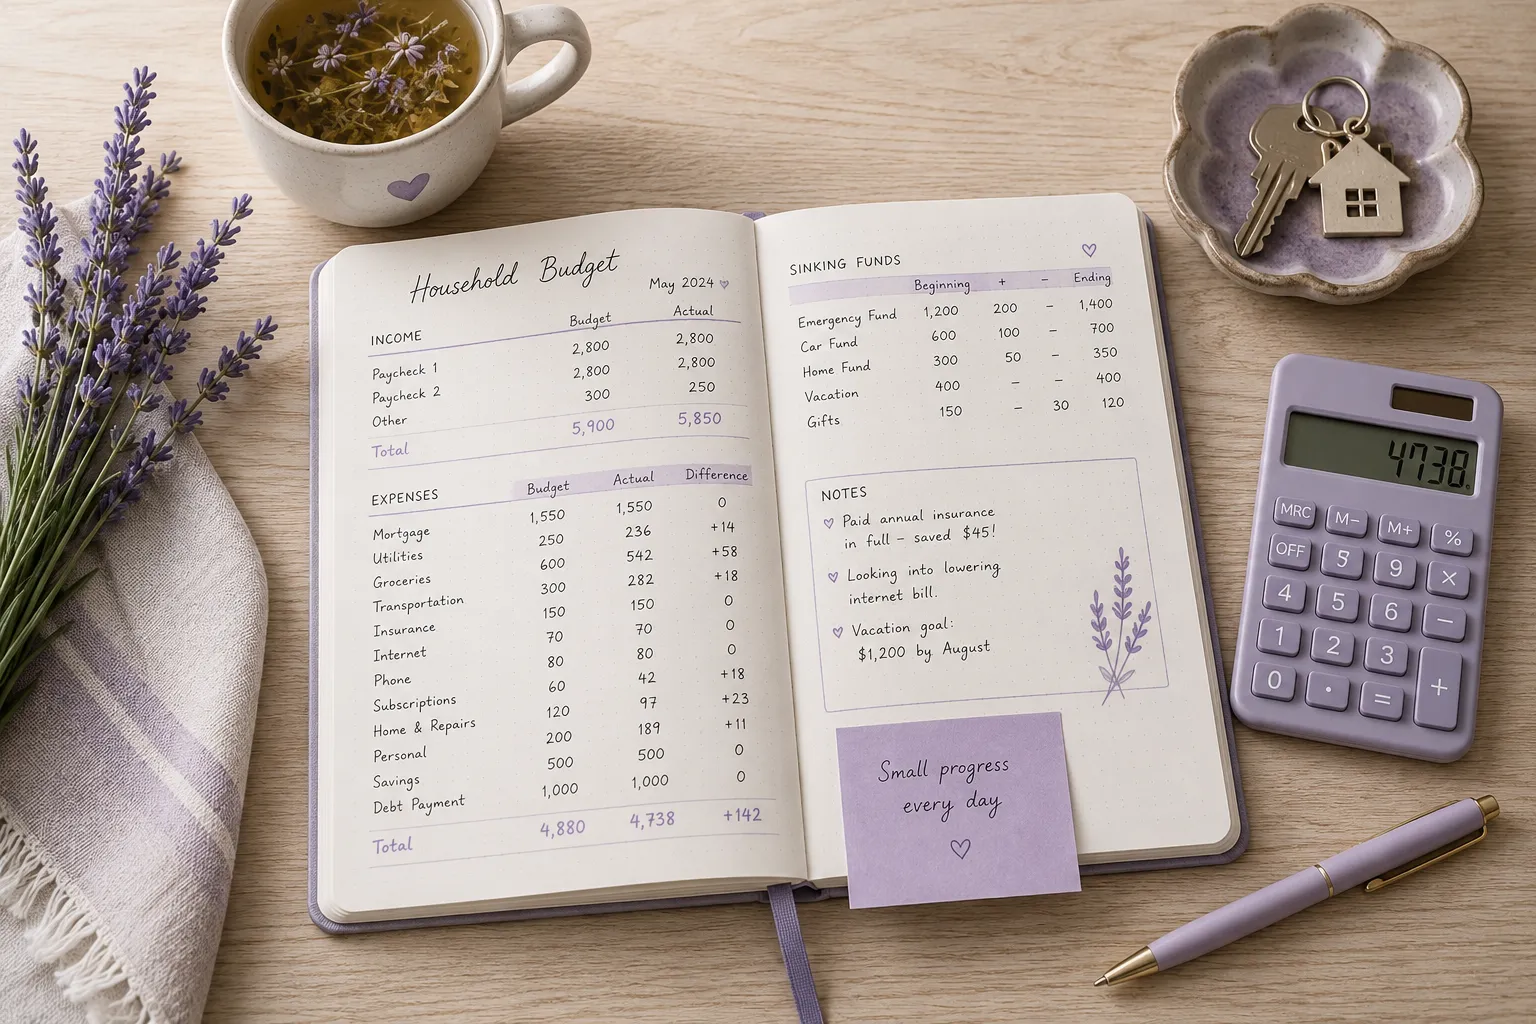 Household Budget
May 2024
INCOME Budget Actual
Paycheck 1 2,800 2,800
Paycheck 2 2,800 2,800
Other 300 250
Total 5,900 5,850
EXPENSES Budget Actual Difference
Mortgage 1,550 1,550 0
Utilities 250 236 +14
Groceries 600 542 +58
Transportation 300 282 +18
Insurance 150 150 0
Internet 70 70 0
Phone 80 80 0
Subscriptions 60 42 +18
Home & Repairs 120 97 +23
Personal 200 189 +11
Savings 500 500 0
Debt Payment 1,000 1,000 0
Total 4,880 4,738 +142
SINKING FUNDS
Beginning + – Ending
Emergency Fund 1,200 200 – 1,400
Car Fund 600 100 – 700
Home Fund 300 50 – 350
Vacation 400 – – 400
Gifts 150 – 30 120
NOTES
Paid annual insurance
in full – saved $45!
Looking into lowering
internet bill.
Vacation goal:
$1,200 by August
Small progress
every day
4738.
MRC M− M+ %
OFF 9 9 ×
4 5 6 −
1 2 3
0 · = +